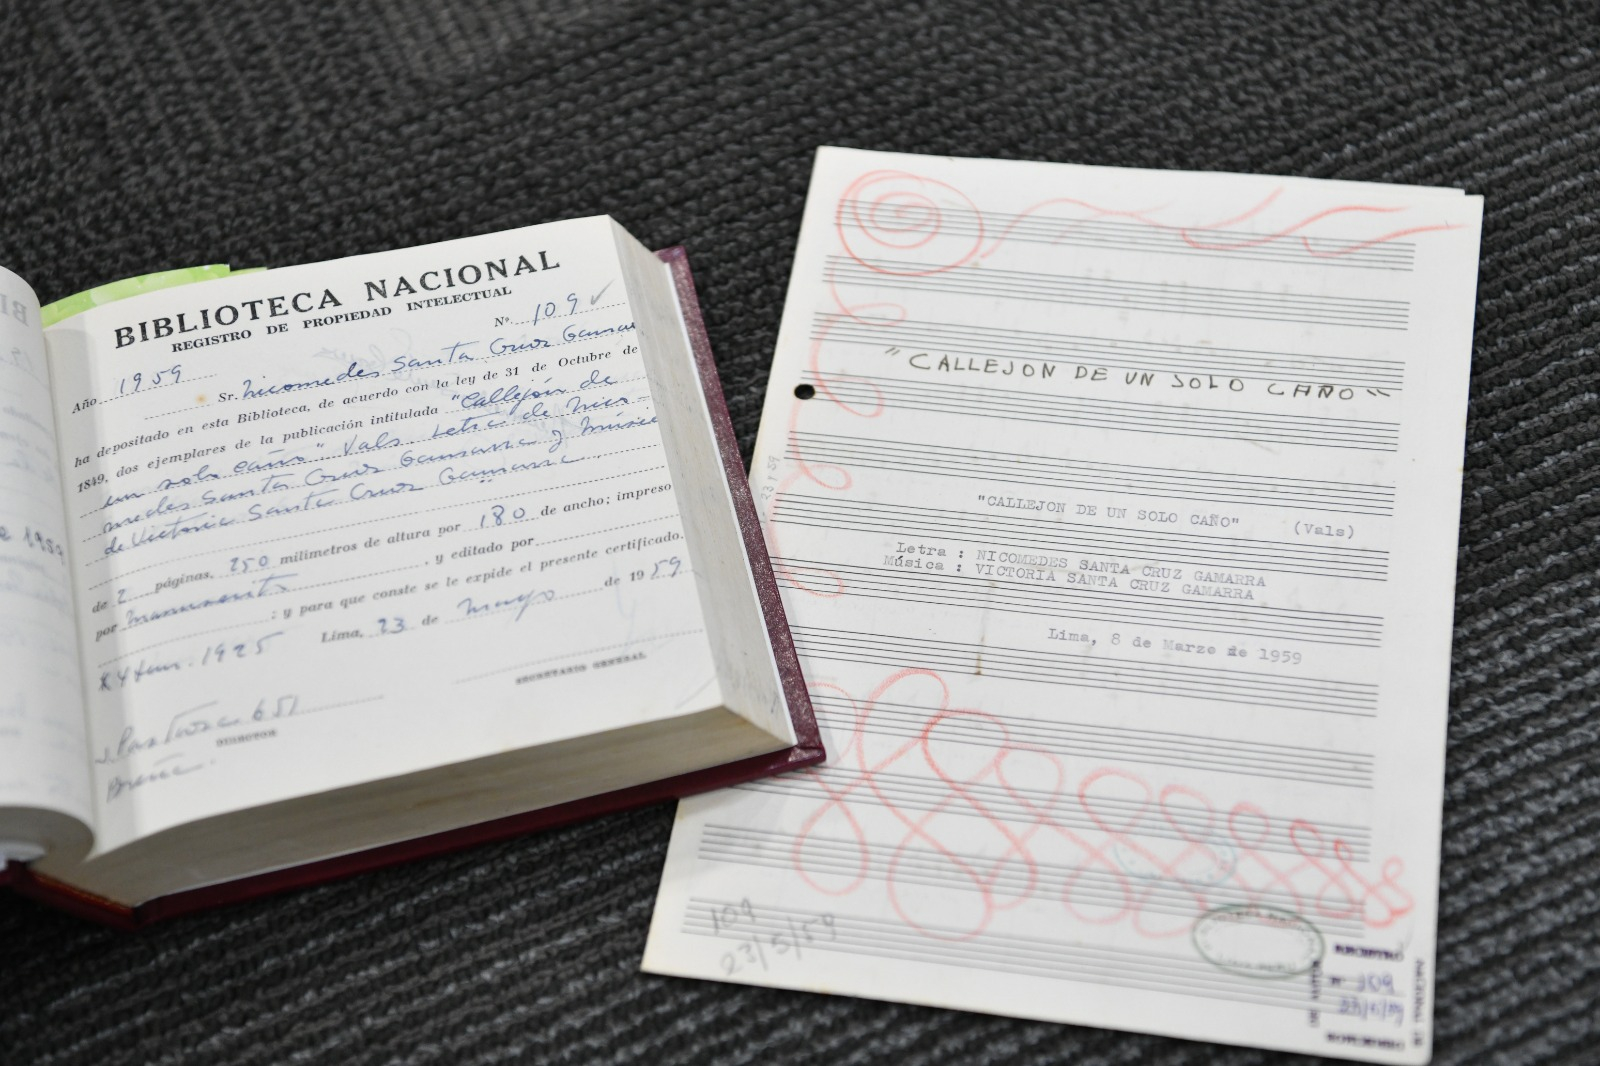 BIBLIOTECA NACIONAL
REGISTRO DE PROPIEDAD INTELECTUAL
Nº. 109
Año 1959
Sr. Nicomedes Santa Cruz Gamar
ha depositado en esta Biblioteca, de acuerdo con la ley de 31 de Octubre de
1849, dos ejemplares de la publicación intitulada "Callejón de
un solo caño" Vals. Letra de Nico-
medes Santa Cruz Gamarra y músic
de Victoria Santa Cruz Gamarra
de 2 páginas, 250 milímetros de altura por 180 de ancho; impreso
por manuscrito, y editado por
; y para que conste se le expide el presente certificado.
Lima, 23 de mayo de 1959
1925
651
DIRECTOR
SECRETARIO GENERAL
Breña.
"CALLEJON DE UN SOLO CAÑO"
"CALLEJON DE UN SOLO CAÑO" (Vals)
Letra : NICOMEDES SANTA CRUZ GAMARRA
Música : VICTORIA SANTA CRUZ GAMARRA
Lima, 8 de Marzo de 1959
109
23/5/59
REGISTRO
109